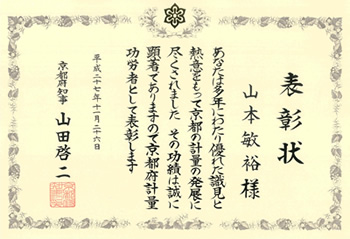 表彰状
山本敏裕様
あなたは多年にわたり優れた識見と
熱意をもって京都の計量の発展に
尽くされました その功績は誠に
顕著でありますので京都府計量
功労者として表彰します
平成二十七年十一月二十六日
京都府知事 山田啓二